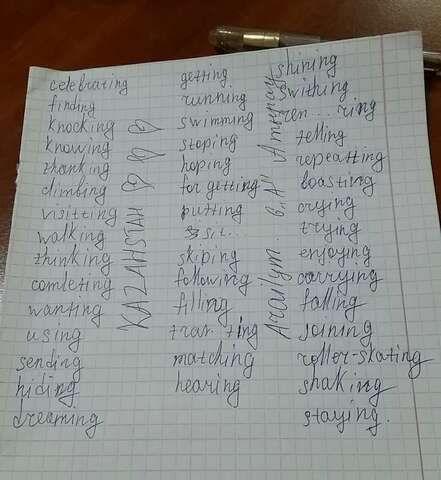 celebrating
finding
knocking
knowing
thanking
climbing
visitting
walking
thinking
comleting
wanting
using
sending
hiding
dreaming
KAZAHSTAN
getting
running
swimming
stoping
hoping
forgetting
putting
sit...
skiping
following
filling
matching
hearing
Arailym 6 "A"
shining
telling
repeatting
boasting
crying
trying
enjoying
carrying
falling
joining
roller-skating
shaking
staying.